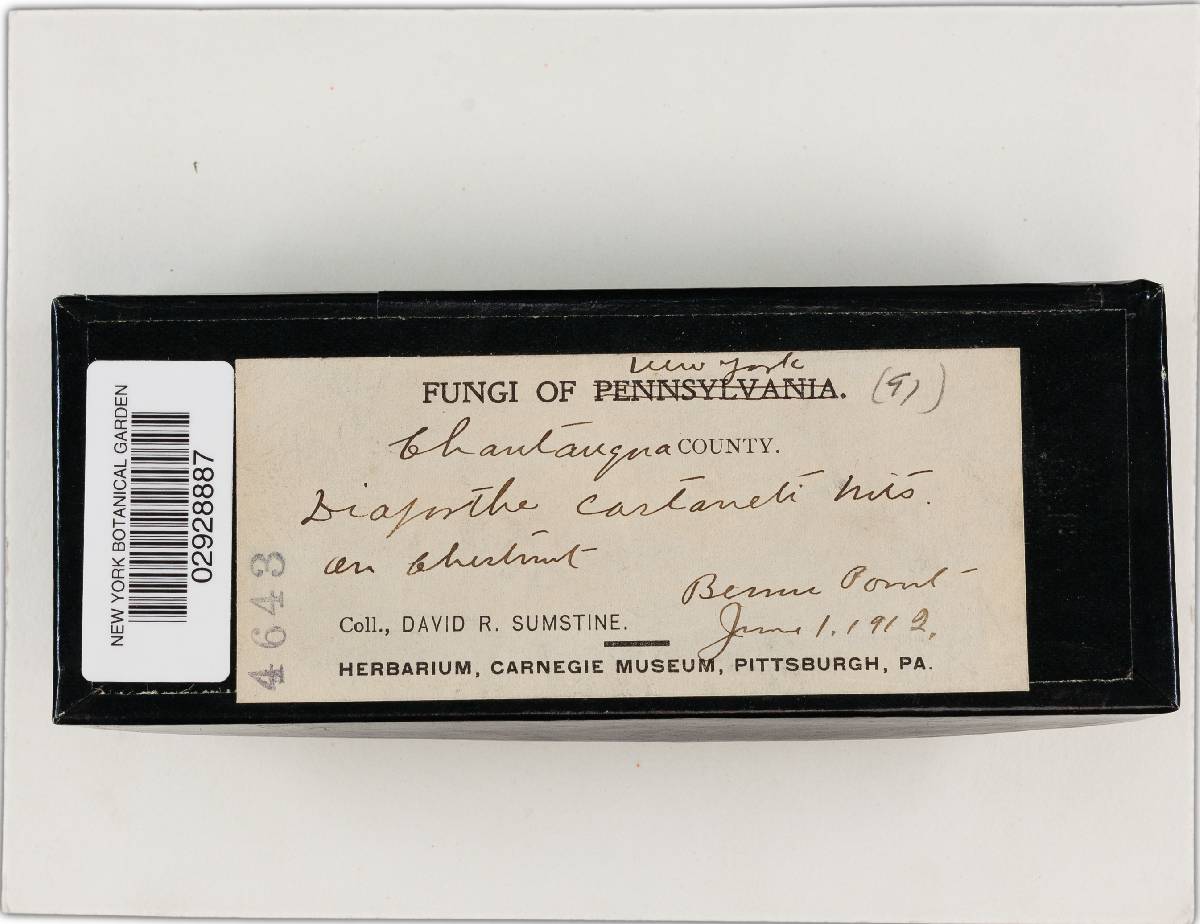 NEW YORK BOTANICAL GARDEN
02928887
4643
New York
FUNGI OF PENNSYLVANIA. (9)
Chautauqua COUNTY.
Diaporthe castaneti Nits.
on Chestnut
Bemus Point
Coll., DAVID R. SUMSTINE.
June 1, 1912.
HERBARIUM, CARNEGIE MUSEUM, PITTSBURGH, PA.